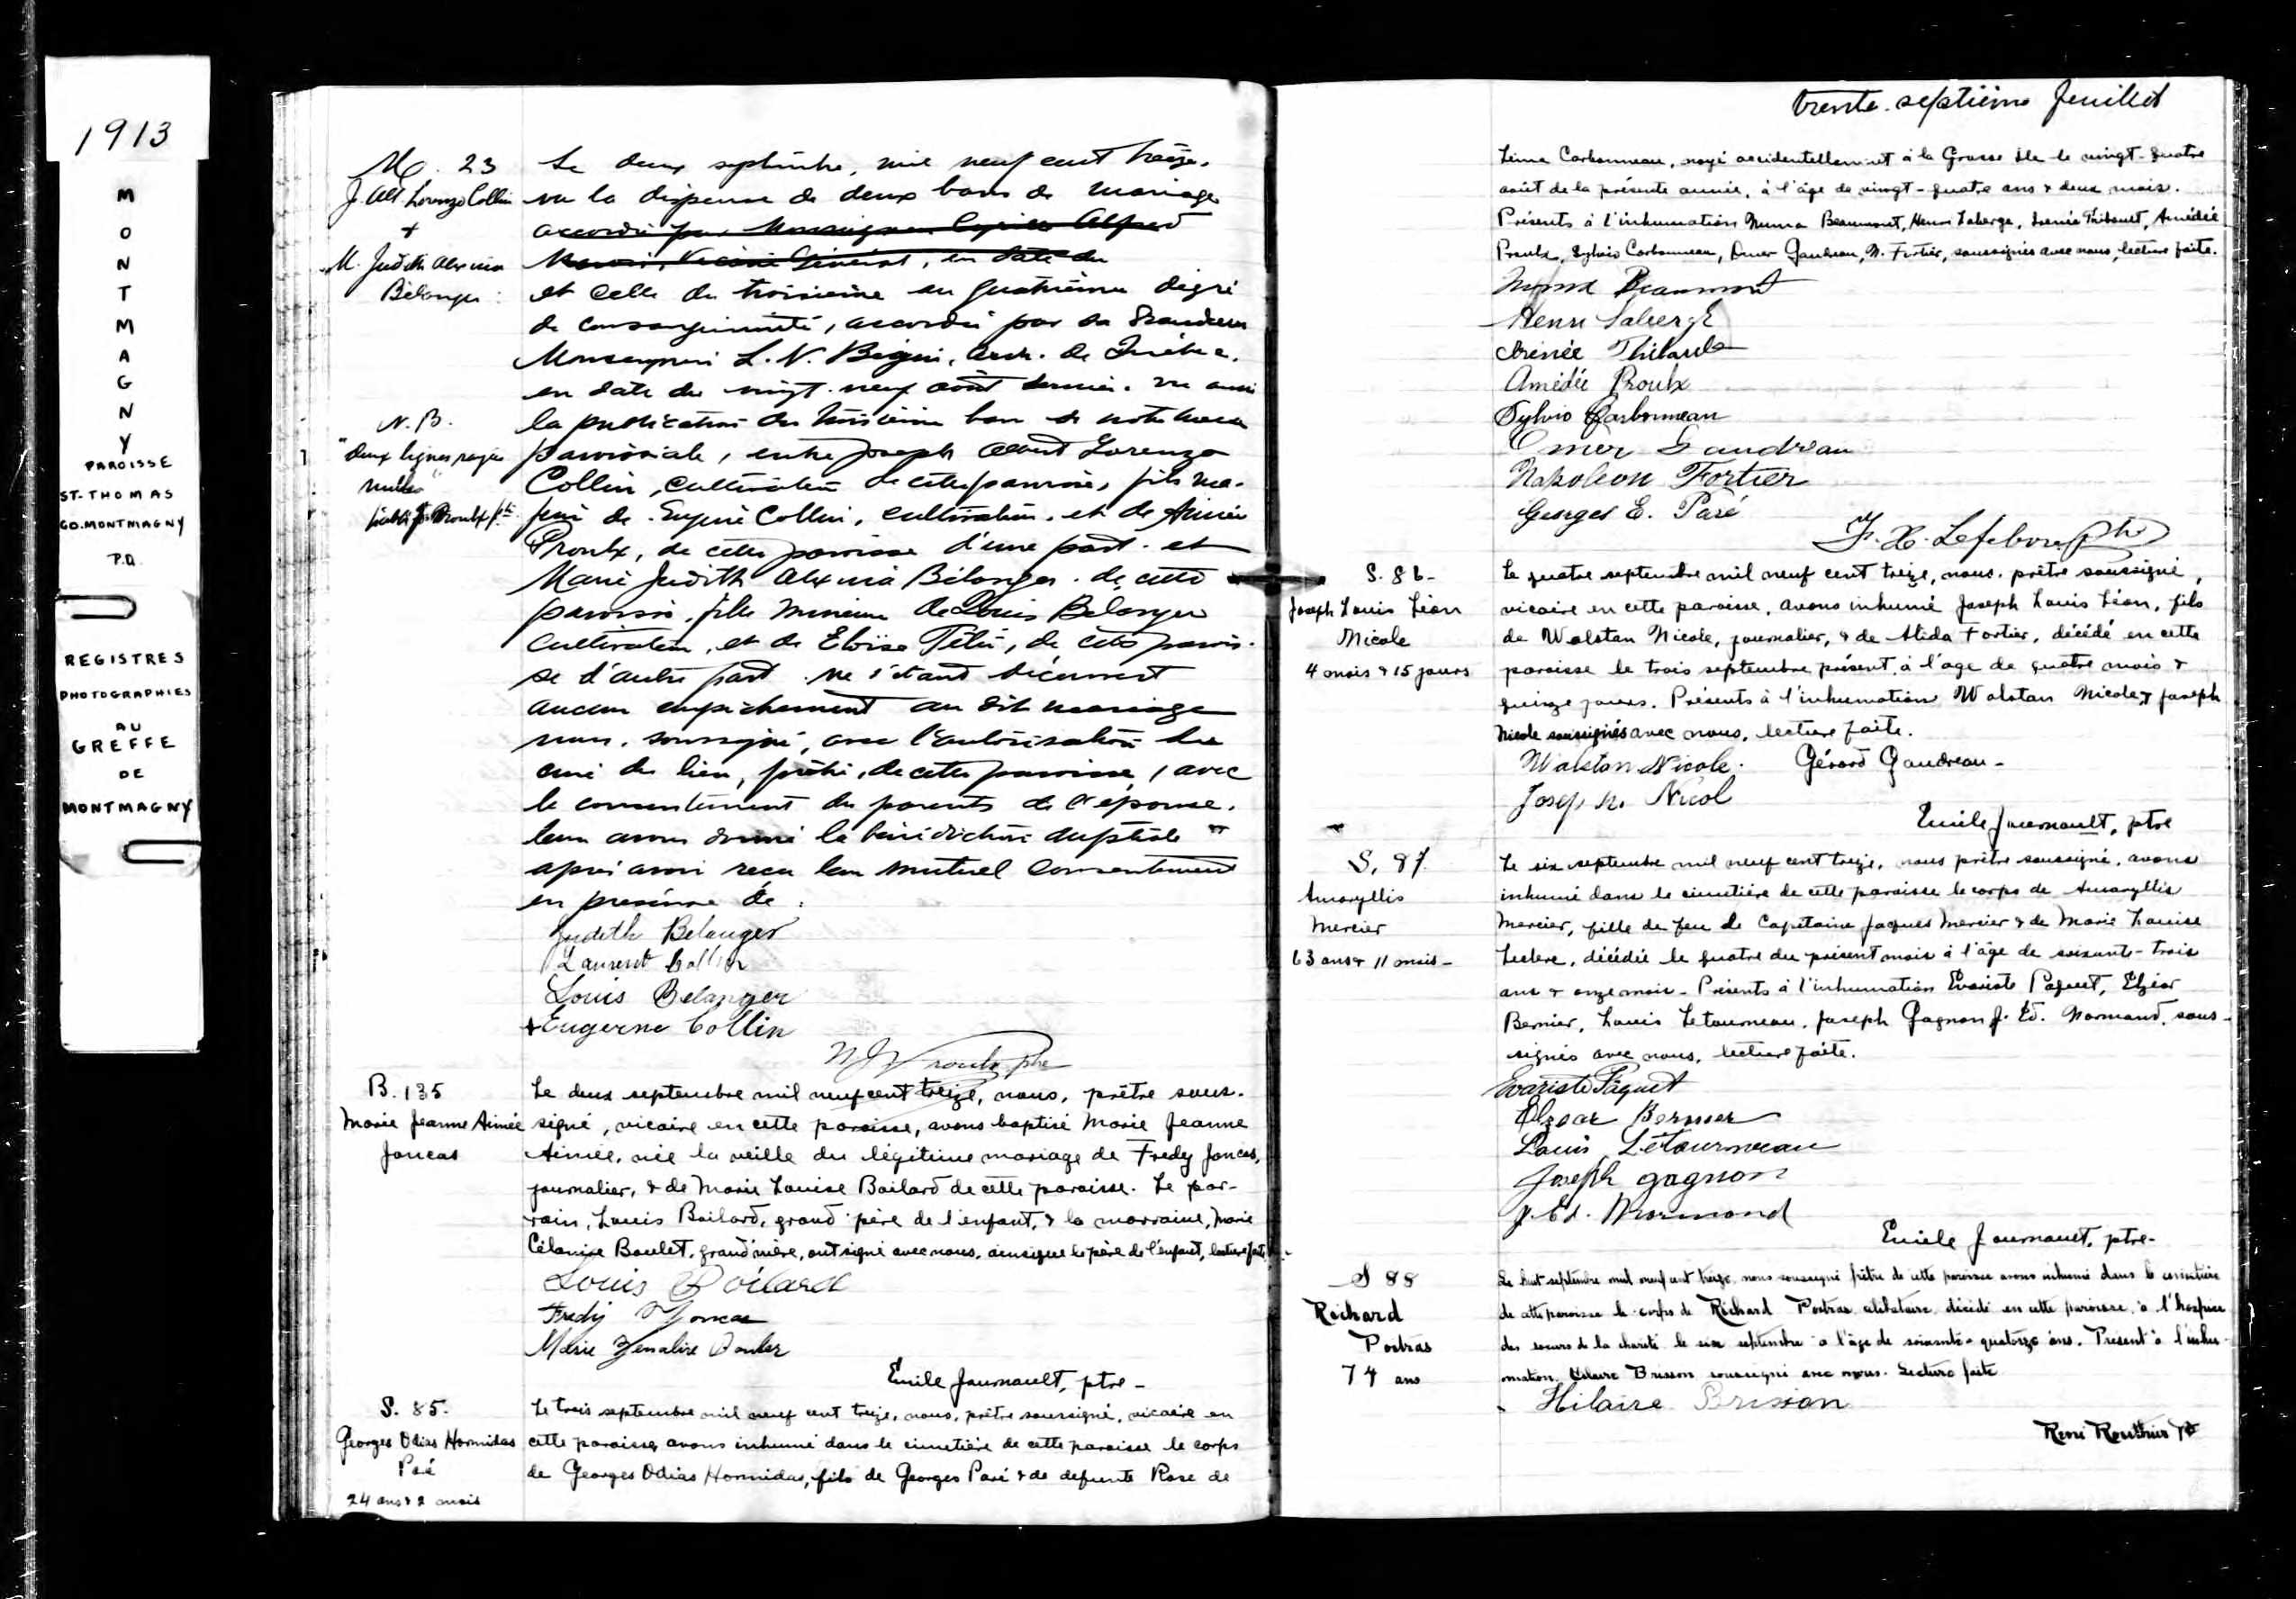 1913
MONTMAGNY
PAROISSE
ST-THOMAS
CO. MONTMAGNY
P.Q.
REGISTRES
PHOTOGRAPHIES
AU
GREFFE
DE
MONTMAGNY
M. 23
J. Alb. Lorenzo Collin
+
M. Judith Alexina
Bélanger
N.B.
"deux lignes rayées
nulles"
Proulx ptre
Le deux septembre, mil neuf cent treize,
vu la dispense de deux bans de mariage
accordée par Monseigneur Cyrille Alfred
Marois, Vicaire Général, en date du
et celle du troisième au quatrième degré
de consanguinité, accordée par Sa Grandeur
Monseigneur L. N. Bégin, Arch. de Québec,
en date du vingt-neuf août dernier, vu aussi
la publication du troisième ban de notre messe
paroissiale, entre Joseph Albert Lorenzo
Collin, cultivateur de cette paroisse, fils ma-
jeur de Eugène Collin, cultivateur, et de Aimée
Proulx, de cette paroisse d'une part et
Marie Judith Alexina Bélanger de cette
paroisse, fille mineure de Louis Bélanger
cultivateur, et de Eloïse Têtu, de cette parois-
se d'autre part ne s'étant découvert
aucun empêchement au dit mariage
nous, soussigné, avec l'autorisation du
curé du lieu, prêtre, de cette paroisse, avec
le consentement des parents de l'épouse,
leur avons donné la bénédiction nuptiale
après avoir reçu leur mutuel consentement
en présence de :
Judeth Belanger
Laurent Collin
Louis Belanger
+Eugerne Collin
Proulx ptre
B. 135
Marie Jeanne Aimée
Joncas
Le deux septembre mil neuf cent treize, nous, prêtre sous-
signé, vicaire en cette paroisse, avons baptisé Marie Jeanne
Aimée, née la veille du légitime mariage de Fredy Joncas,
journalier, & de Marie Louise Boilard de cette paroisse. Le par-
rain, Louis Boilard, grand'père de l'enfant, & la marraine, Marie
Célanire Boulet, grand'mère, ont signé avec nous, ainsi que le père de l'enfant, lecture faite.
Louis Boilard
Fredy Joncas
Marie Boulet
Emile Journault, ptre-
S. 85.
Georges Odias Hormidas
Paré
24 ans & 2 mois
Le trois septembre mil neuf cent treize, nous, prêtre soussigné, vicaire en
cette paroisse, avons inhumé dans le cimetière de cette paroisse le corps
de Georges Odias Hormidas, fils de Georges Paré & de defunte Rose de
trente-septième feuillet
Lima Carbonneau, noyé accidentellement à la Grosse Ile le vingt-quatre
août de la présente année, à l'âge de vingt-quatre ans & deux mois.
Présents à l'inhumation Numa Beaumont, Henri Laberge, Irénée Thibault, Amédée
Proulx, Sylvio Carbonneau, Omer Gaudreau, N. Fortier, soussignés avec nous, lecture faite.
Numa Beaumont
Henri Laberge
Irénée Thibault
Amédée Proulx
Sylvio Carbonneau
Omer Gaudreau
Napoleon Fortier
Georges E. Paré
F. X. Lefebvre ptre
S. 86-
Joseph Louis Léon
Nicole
4 mois & 15 jours
Le quatre septembre mil neuf cent treize, nous, prêtre soussigné,
vicaire en cette paroisse, avons inhumé Joseph Louis Léon, fils
de Walstan Nicole, journalier, & de Alida Fortier, décédé en cette
paroisse le trois septembre présent, à l'age de quatre mois &
quinze jours. Présents à l'inhumation Walstan Nicole & Joseph
Nicole soussignés avec nous, lecture faite.
Walstan Nicole. Gérard Gaudreau-
Joseph Nicol
Emile Journault, ptre
S. 87.
Amaryllis
Mercier
63 ans & 11 mois-
Le six septembre mil neuf cent treize, nous prêtre soussigné, avons
inhumé dans le cimetière de cette paroisse le corps de Amaryllis
Mercier, fille de feu le Capitaine Jacques Mercier & de Marie Louise
Leclerc, décédée le quatre du présent mois à l'âge de soixante-trois
ans & onze mois- Présents à l'inhumation Evariste Paquet, Elzéar
Bernier, Louis Letourneau, Joseph Gagnon J. Ed. Normand, sous-
signés avec nous, lecture faite.
Evariste Paquet
Elzear Bernier
Louis Létourneau
Joseph Gagnon
J. Ed. Normand
Emile Journault, ptre-
S 88
Richard
Poitras
74 ans
Le huit septembre mil neuf cent treize, nous soussigné prêtre de cette paroisse avons inhumé dans le cimetière
de cette paroisse le corps de Richard Poitras célibataire décédé en cette paroisse, à l'hospice
des soeurs de la charité le six septembre à l'âge de soixante-quatorze ans. Présent à l'inhu-
mation, Hilaire Brisson soussigné avec nous. Lecture faite
Hilaire Brisson
René Routhier ptre